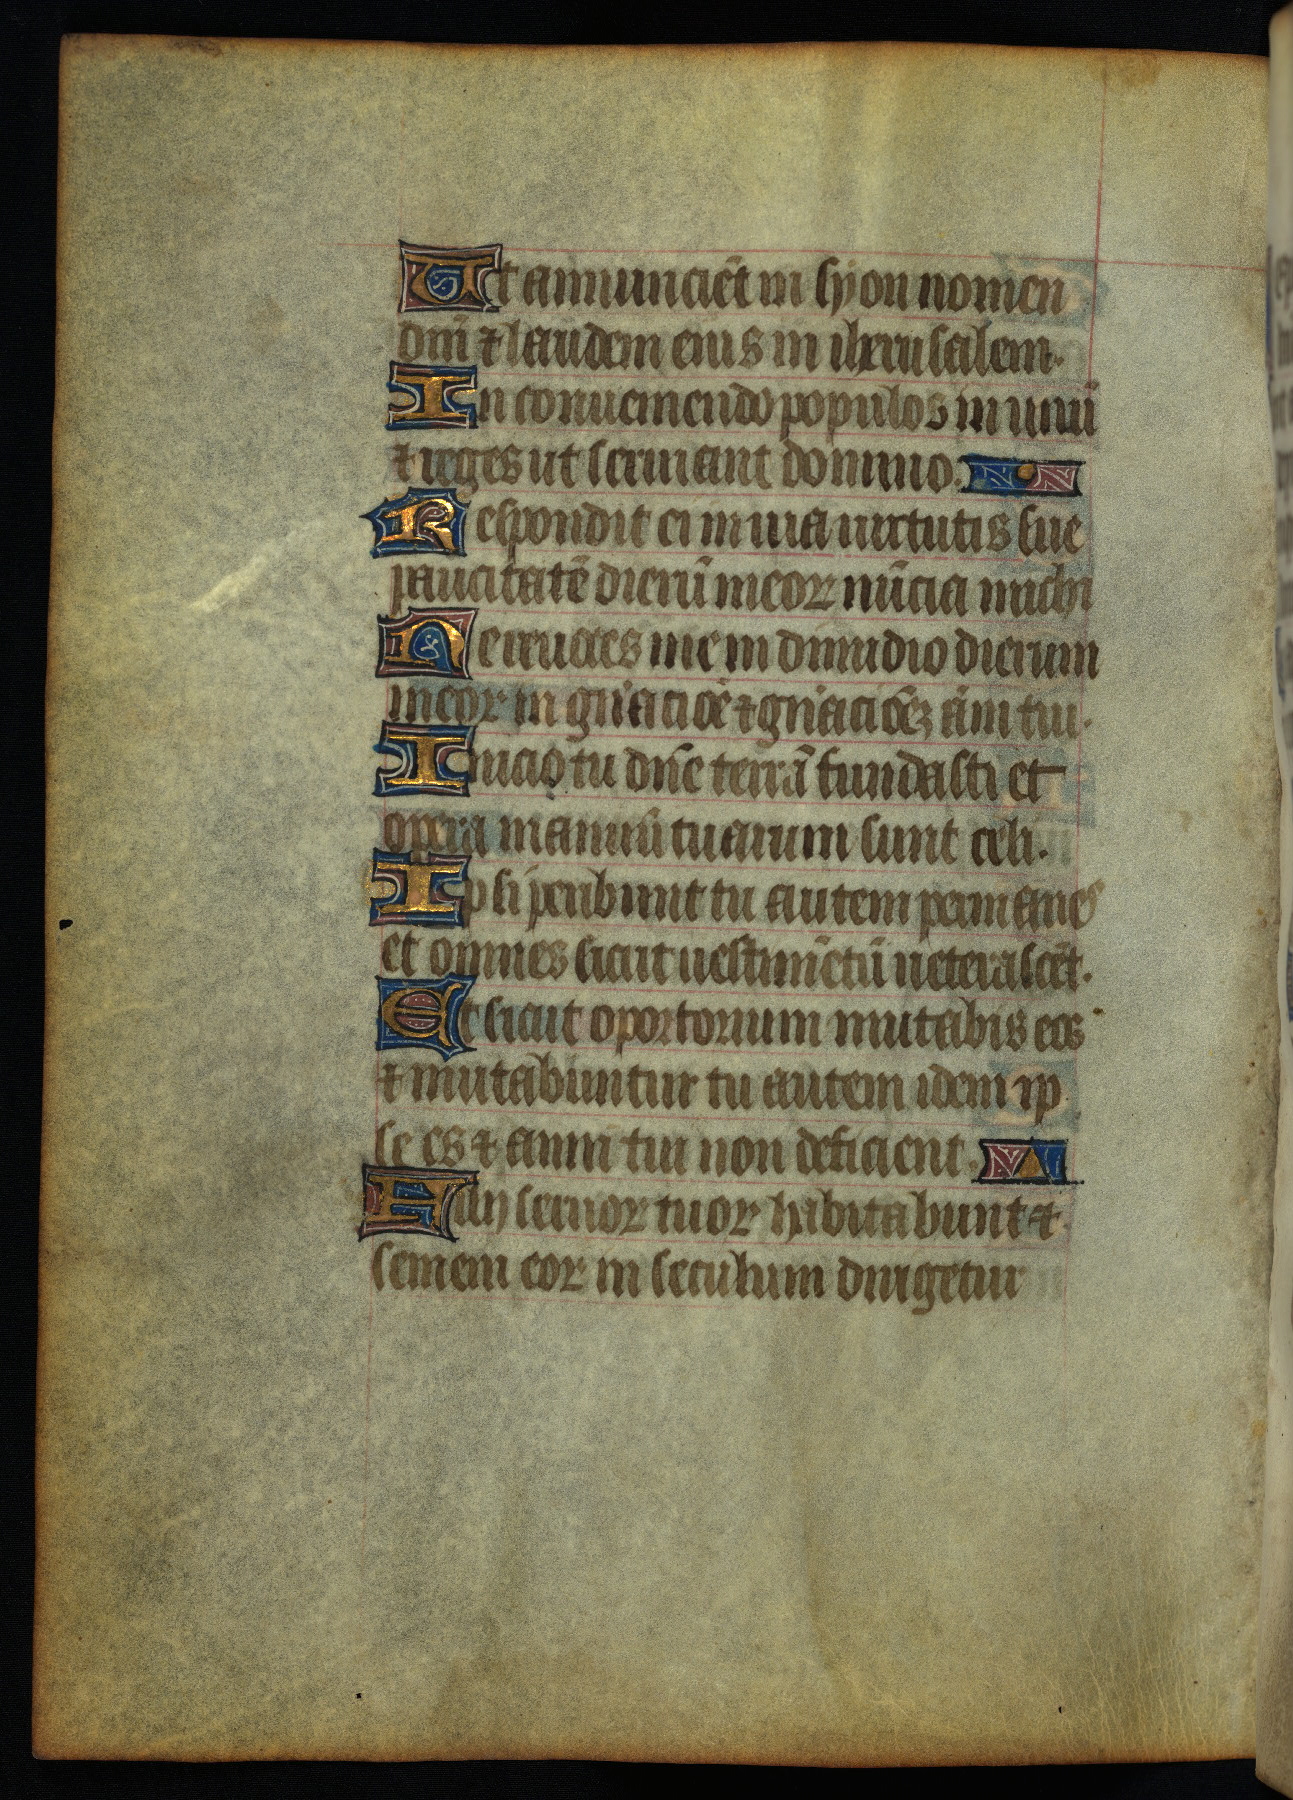 Ut annunciēt in syon nomen
dnī ⁊ laudem eius in iherusalem.
In conueniendo populos in unū
⁊ reges ut seruiant domino.
Respondit ei in uia uirtutis sue
paucitatē dierū meoꝝ nūcia michi
Ne reuoces me in dimidio dierum
meoꝝ in gn̄acioē ⁊ gn̄acioēꝫ āni tui.
Inicio tu dn̄e terrā fundasti et
opera manuū tuarum sunt celi.
Ipsi peribunt tu autem permanes
et omnes sicut uestimētū ueterascēt.
Et sicut oportorium mutabis eos
⁊ mutabuntur tu autem idem ip
se es ⁊ anni tui non deficient.
Filij seruoꝝ tuoꝝ habitabunt ⁊
semem eoꝝ in seculum dirigetur